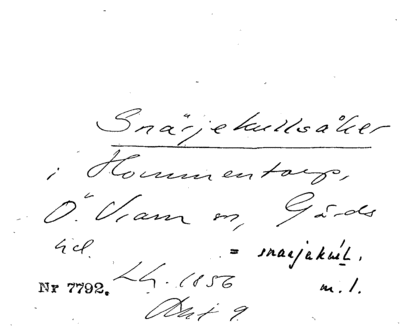 Snärjekullsåker
i Hommentorp,
Ö. Vram sn, Gärds
hd. = snarjekull.
Nr 7792. Lh. 1856 m. l.
Akt 9